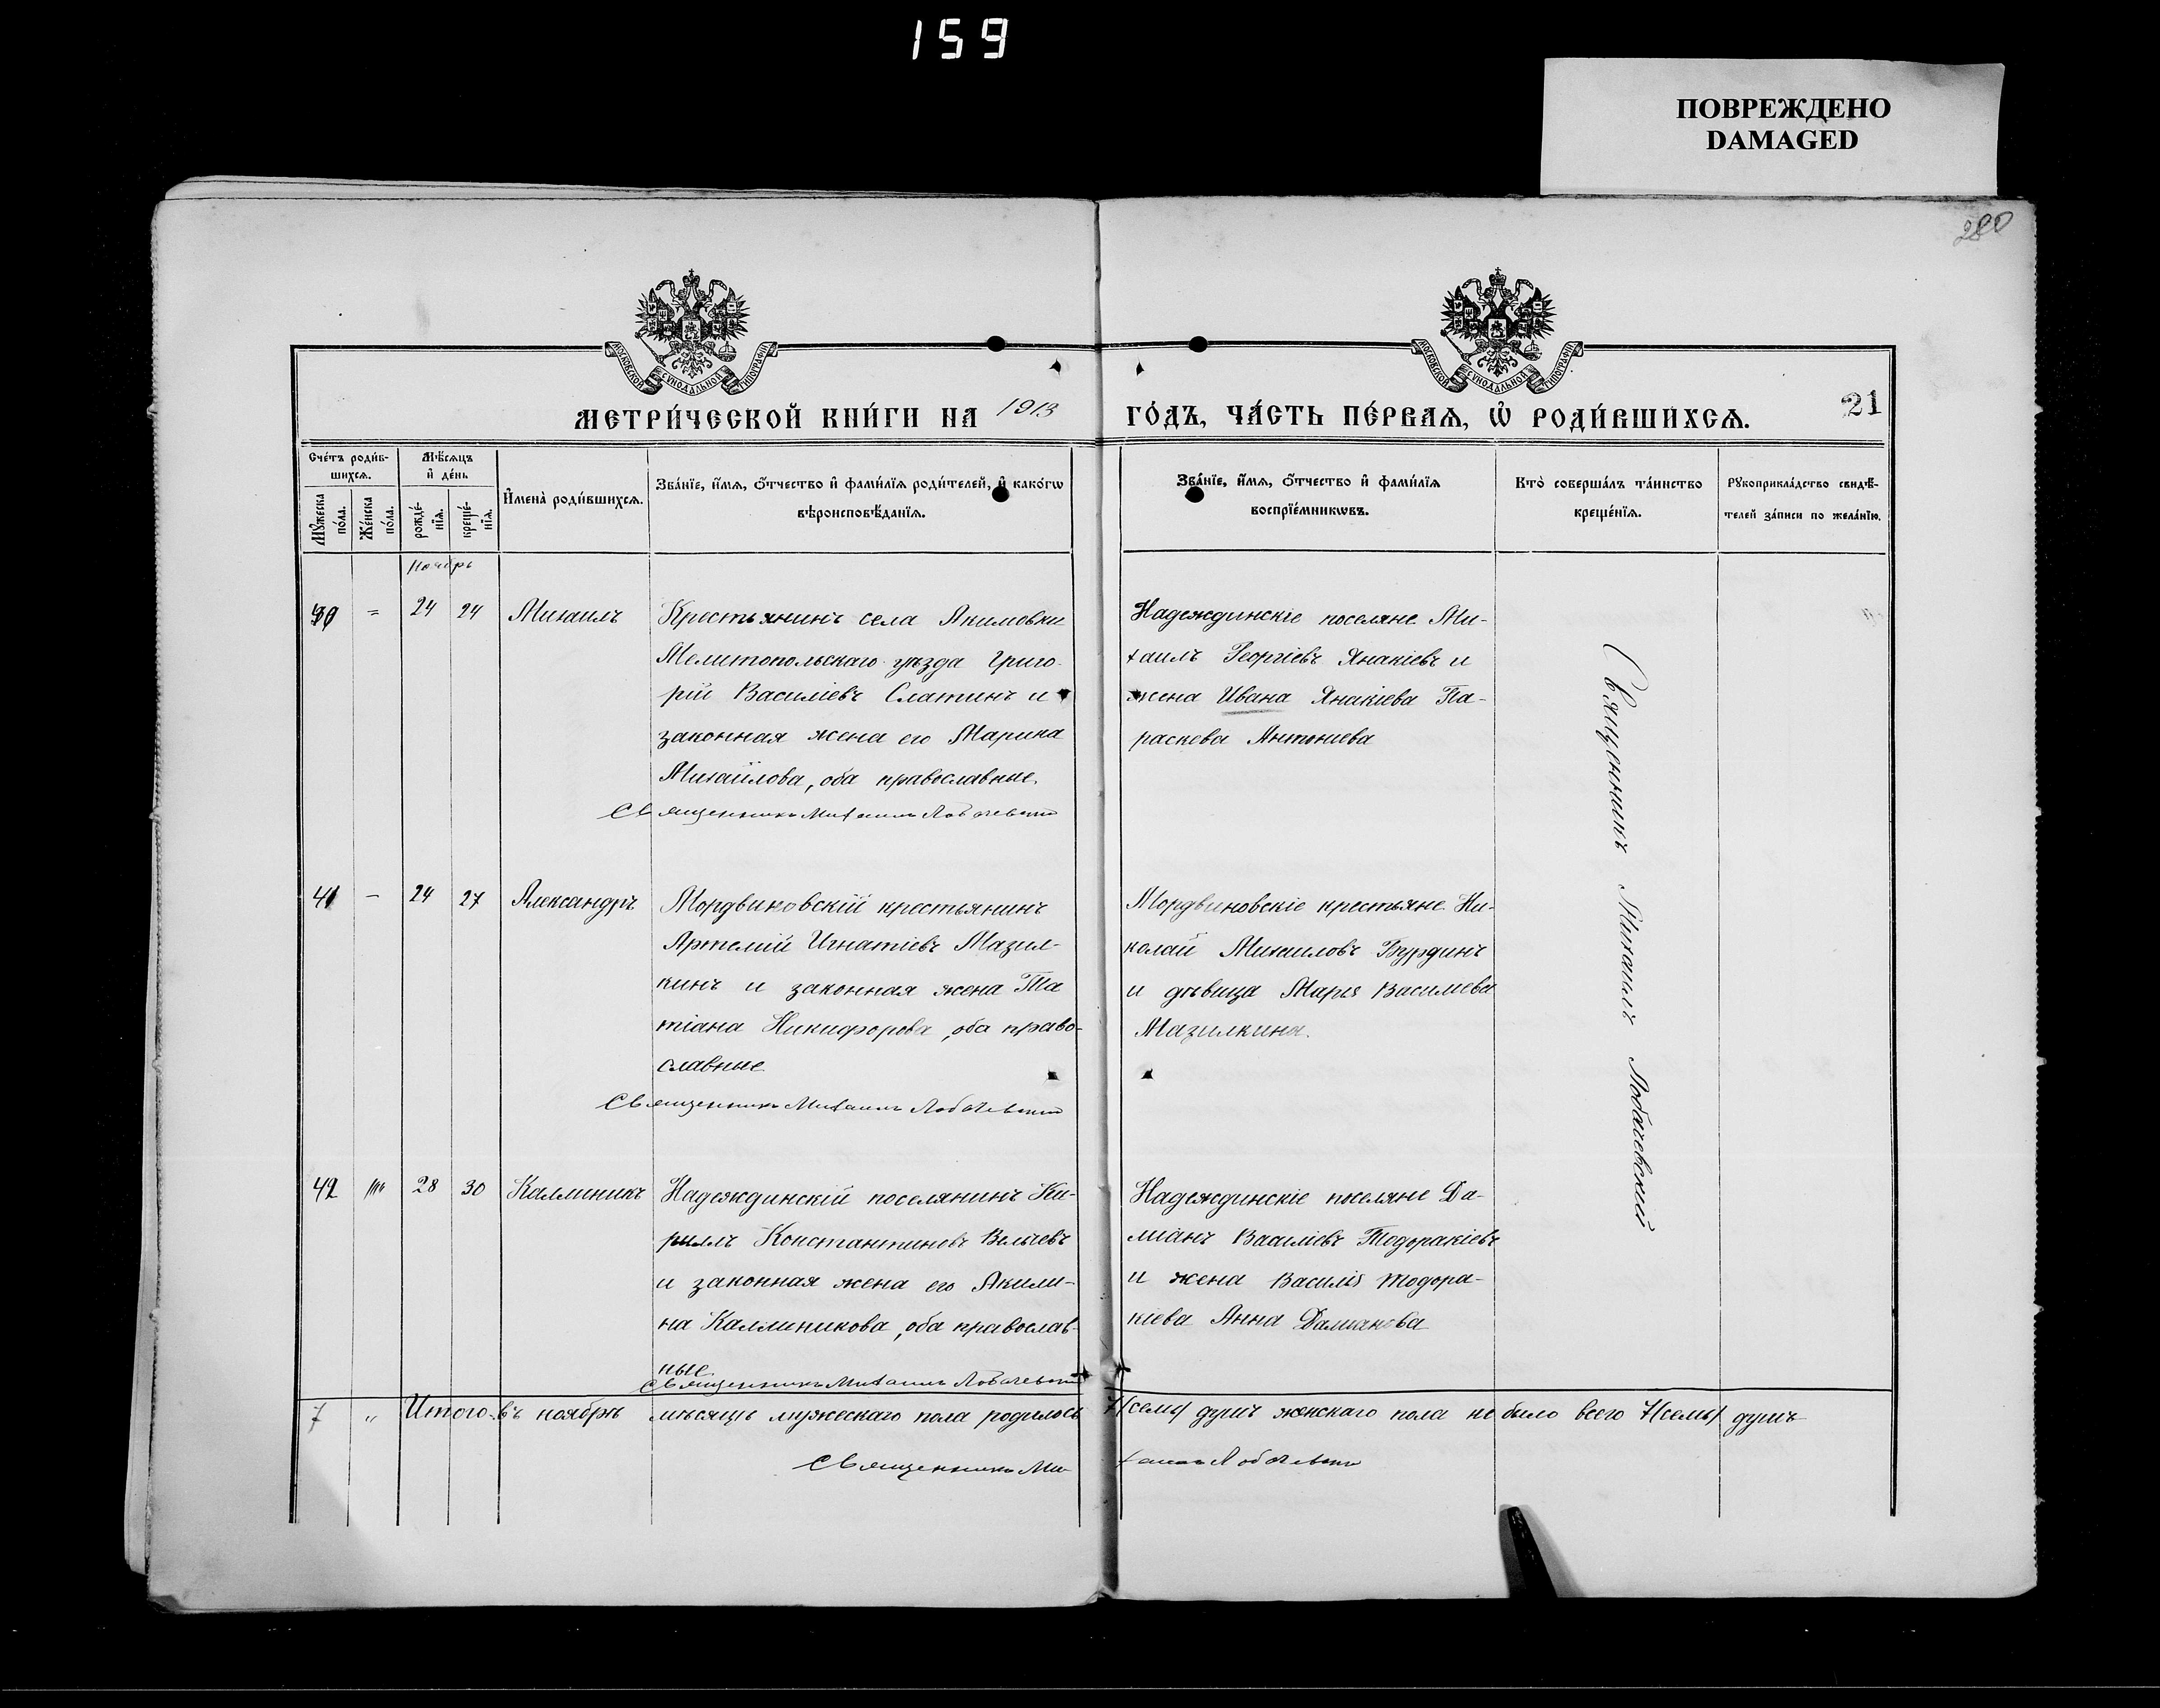 159
ПОВРЕЖДЕНО
DAMAGED
280
МОСКОВСКОЙ СѴНОДАЛЬНОЙ ТИПОГРАФІИ
МОСКОВСКОЙ СѴНОДАЛЬНОЙ ТИПОГРАФІИ
МЕТРИ́ЧЕСКОЙ КНИ́ГИ НА 1913
ГО́ДЪ, ЧА́СТЬ ПЕ́РВАѦ, Ѡ҆ РОДИ́ВШИХСѦ.
21
Сче́тъ роди́в-
шихсѧ.
Мѣ́сѧцъ
и҆ де́нь
Мꙋ́жеска
по́ла.
Же́нска
по́ла.
рожде́-
нїѧ.
креще́-
нїѧ.
И҆мена̀ роди́вшихсѧ.
Зва́нїе, и҆́мѧ, ѻ҆́тчество и҆ фами́лїѧ роди́телей, и҆ како́гѡ
вѣроисповѣ́данїѧ.
Зва́нїе, и҆́мѧ, ѻ҆́тчество и҆ фами́лїѧ
воспрїе́мникѡвъ.
Кто̀ соверша́лъ та́инство
креще́нїѧ.
Рꙋкоприкла́дство свидѣ́-
телей за́писи по жела́нїю.
Ноябрь
= 24 24 Михаилъ
Крестьянинъ села Акимовки
Мелитопольскаго уѣзда Григо-
рій Василіевъ Слатинъ и
законная жена его Марина
Михайлова, оба православные.
Священникъ Михаилъ Лобачевскій
Надеждинскіе поселяне Ми-
хаилъ Георгіевъ Янакіевъ и
жена Ивана Янакіева Па-
раскева Антониева
Священникъ Михаилъ Лобачевскій
41 – 24 27 Александръ
Мордвиновскій крестьянинъ
Артемій Игнатіевъ Мазил-
кинъ и законная жена Та
тіана Никифорова, оба право-
славные
Священникъ Михаилъ Лобачевскій
Мордвиновскіе крестьяне Ни-
колай Михаиловъ Бурдинъ
и дѣвица Марія Василиева
Мазилкина.
42 28 30 Каллиникъ
Надеждинскій поселянинъ Ки-
риллъ Константиновъ Вельчевъ
и законная жена его Акили-
на Каллиникова, оба православ-
ные
Священникъ Михаилъ Лобачевскій
Надеждинскіе поселяне Да-
міанъ Василіевъ Тодоракіевъ
и жена Василія Тодора-
кіева Анна Даміанова
7 " Итого въ ноябрѣ мѣсяцѣ мужескаго пола родилось 7/семь/ душъ женскаго пола не было всего 7/семь/ душъ
Священникъ Михаилъ Лобачевскій